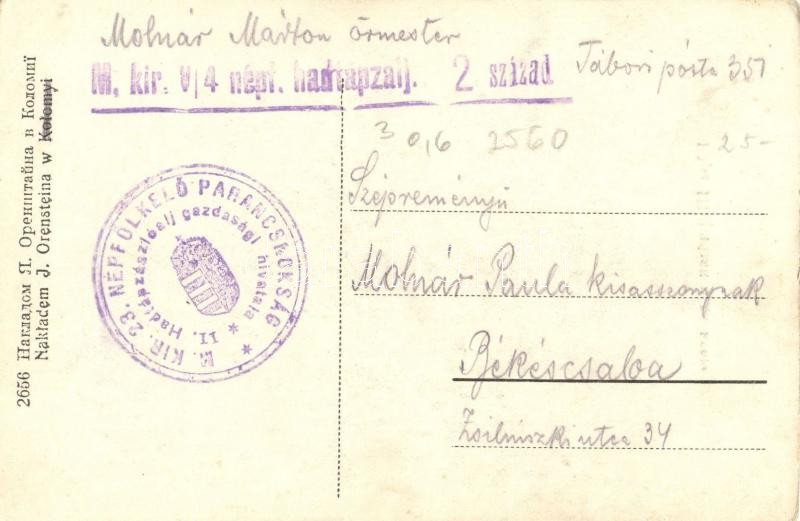 Molnár Márton őrmester
M. kir. V/4 népf. hadtápzalj. 2 század
Tábori pósta 351
3 0,6 2560 25-
Szépreményű
Molnár Paula kisasszonynak
Békéscsaba
Zsilinszki utca 34
M. KIR. 23. NÉPFÖLKELŐ PARANCSNOKSÁG
II. Hadtápzászlóalj gazdasági hivatala
2656 Накладом Я. Оренштайна в Коломиї
Nakładem J. Orensteina w Kołomyi